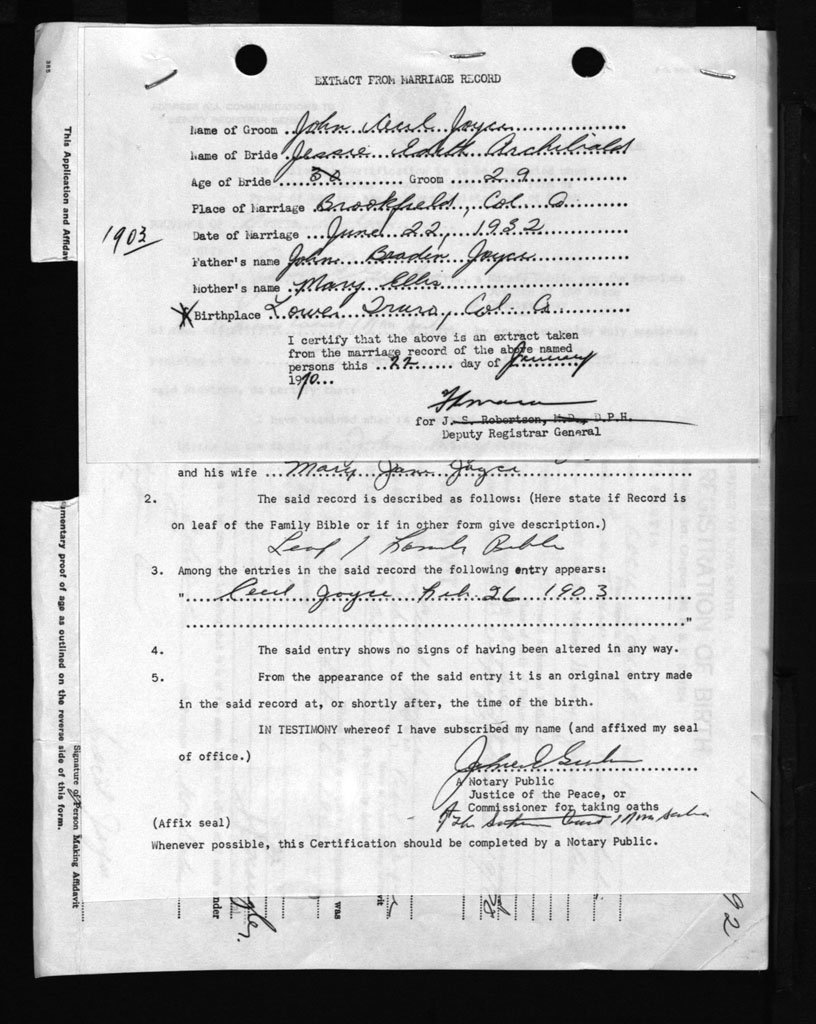 EXTRACT FROM MARRIAGE RECORD
Name of Groom John Cecil Joyce
Name of Bride Jessie Edith Archibald
Age of Bride 30 Groom 29
Place of Marriage Brookfield, Col Co
Date of Marriage June 22, 1932
1903
Father's name John Braden Joyce
Mother's name Mary Ellis
Birthplace Lower Truro, Col Co
I certify that the above is an extract taken
from the marriage record of the above named
persons this 22 day of January
1970
for J. S. Robertson, M.D., D.P.H.
Deputy Registrar General
and his wife Mary Jane Joyce
2. The said record is described as follows: (Here state if Record is
on leaf of the Family Bible or if in other form give description.)
Leaf of Family Bible
3. Among the entries in the said record the following entry appears:
" Cecil Joyce Feb. 26 1903
"
4. The said entry shows no signs of having been altered in any way.
5. From the appearance of the said entry it is an original entry made
in the said record at, or shortly after, the time of the birth.
IN TESTIMONY whereof I have subscribed my name (and affixed my seal
of office.)
A Notary Public
Justice of the Peace, or
A Commissioner for taking oaths
of the Supreme Court of Nova Scotia
(Affix seal)
Whenever possible, this Certification should be completed by a Notary Public.
This Application and Affidav
mentary proof of age as outlined on the reverse side of this form.
Signature of Person Making Affidavit
under
was
92